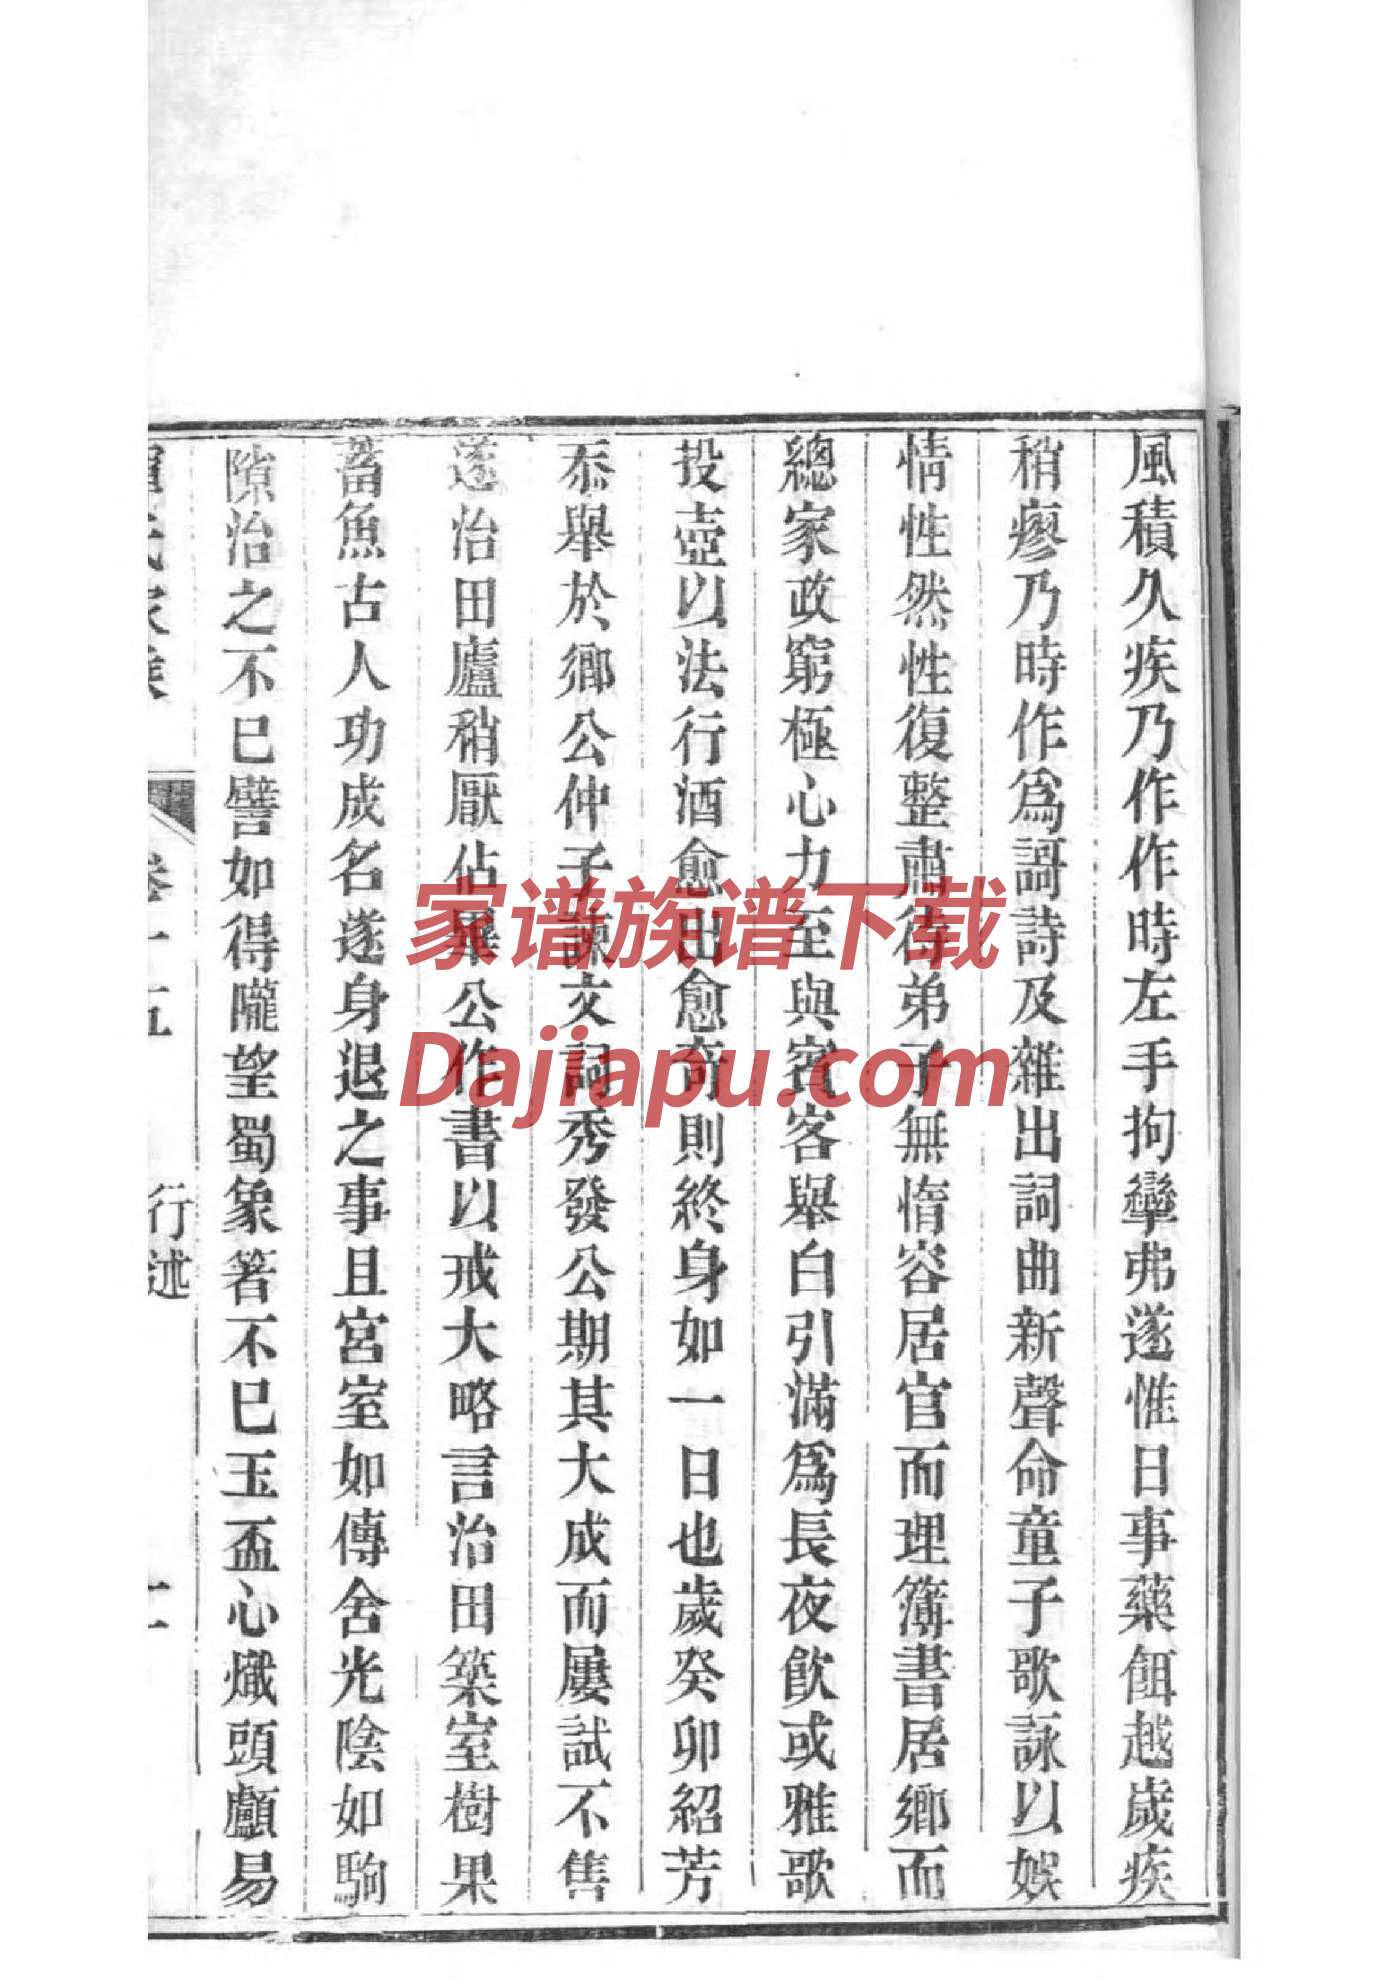 風積久疾乃作作時左手拘攣弗遂惟日事藥餌越歲疾
稍瘳乃時作爲謌詩及雜出詞曲新聲命童子歌詠以娛
情性然性復整肅待弟子無惰容居官而理簿書居鄉而
總家政窮極心力至與賓客舉白引滿爲長夜飲或雅歌
投壺以法行酒愈出愈奇則終身如一日也歲癸卯紹芳
忝舉於鄉公仲子諒文詞秀發公期其大成而屢試不售
遂治田廬稍厭佔畢公作書以戒大略言治田築室樹果
畜魚古人功成名遂身退之事且宮室如傳舍光陰如駒
隙治之不已譬如得隴望蜀象箸不已玉盃心熾頭顱易
氏家
卷十五
行述
家谱族谱下载
Dajiapu.com